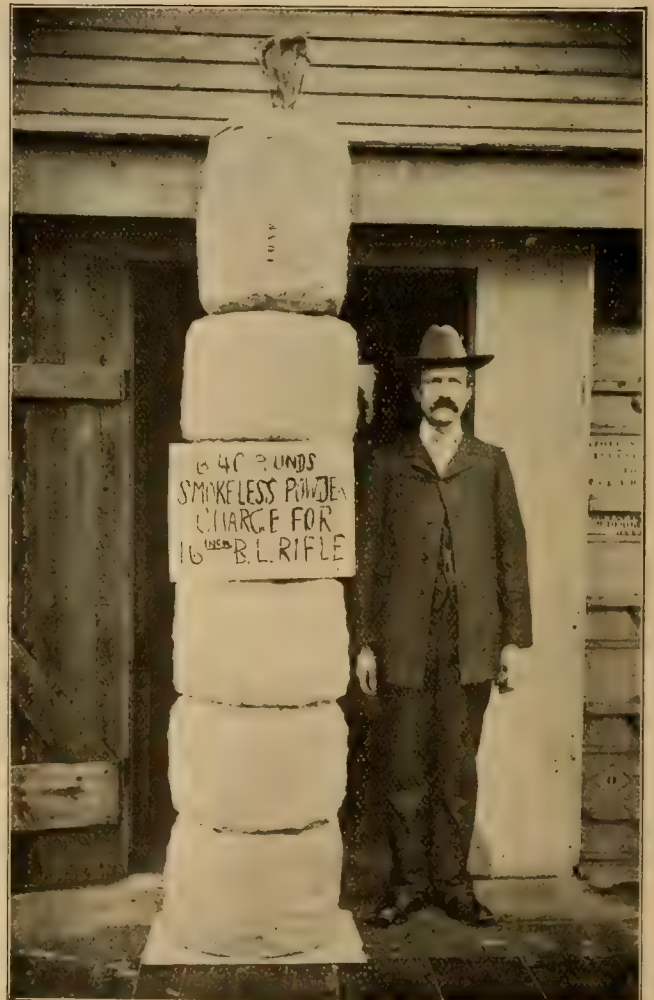 640 POUNDS
SMOKELESS POWDER
CHARGE FOR
16 INCH B.L. RIFLE